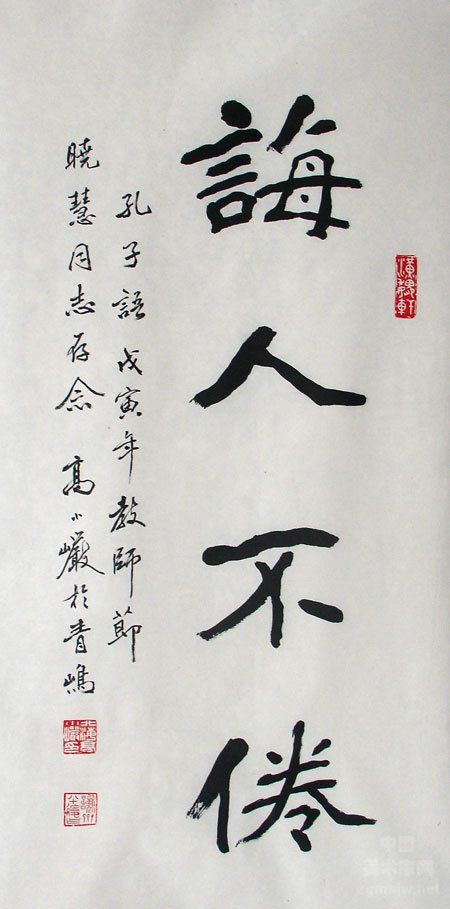 誨人不倦
孔子語戊寅年教師節
曉慧同志存念 高小巖於青島
中国
美术家网
cgmsjw.net